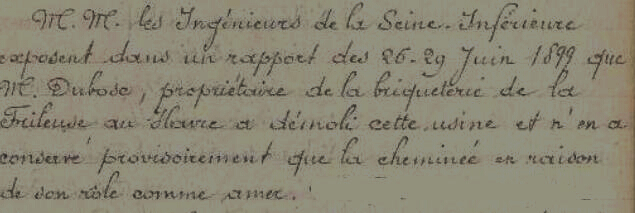 M. M. les Ingénieurs de la Seine-Inférieure
exposent dans un rapport des 26-29 Juin 1899 que
M. Dubosc, propriétaire de la briqueterie de la
Frileuse au Havre a démoli cette usine et n'en a
conservé provisoirement que la cheminée en raison
de son rôle comme amer.